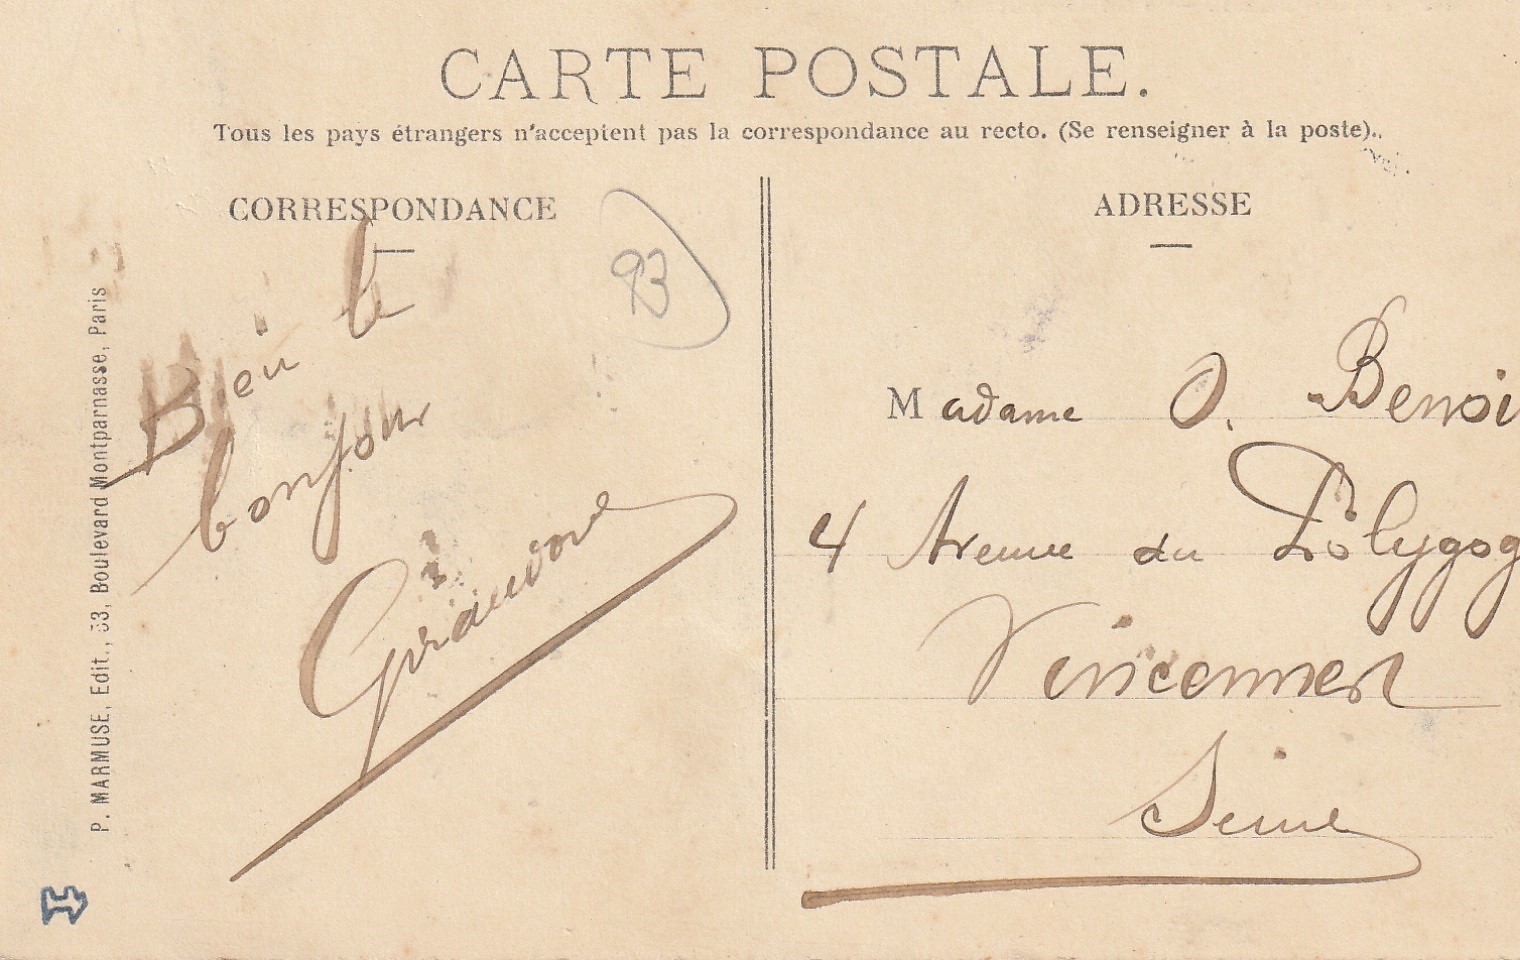 CARTE POSTALE.
Tous les pays étrangers n'acceptent pas la correspondance au recto. (Se renseigner à la poste).
CORRESPONDANCE
93
Bien le
bonjour
P. MARMUSE, Edit., 33, Boulevard Montparnasse, Paris
ADRESSE
Madame O. Benoi
4 Avenue du Polygog
Vincennes
Seine